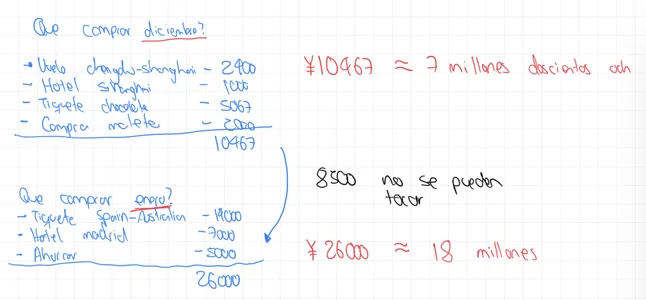 Que comprar diciembre?
- Vuelo chengdu-shanghai - 2400
- Hotel shanghai - 1000
- Tiquete chocolate - 5067
- Compra maleta - 2000
10467
¥10467 ≈ 7 millones doscientos och
8500 no se pueden
tocar
Que comprar enero?
- Tiquete Spain-Australia - 14000
- Hotel madrid - 7000
- Ahorrar - 5000
26000
¥26000 ≈ 18 millones